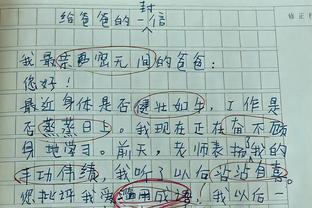 给爸爸的一封信
我最亲密无间的爸爸：
您好！
最近身体是否健壮如牛，工作是
否蒸蒸日上。我现在正在奋不顾
身地学习。前天，老师表扬我的
丰功伟绩，我听了以后沾沾自喜。
您批评我爱滥用成语，我以后一